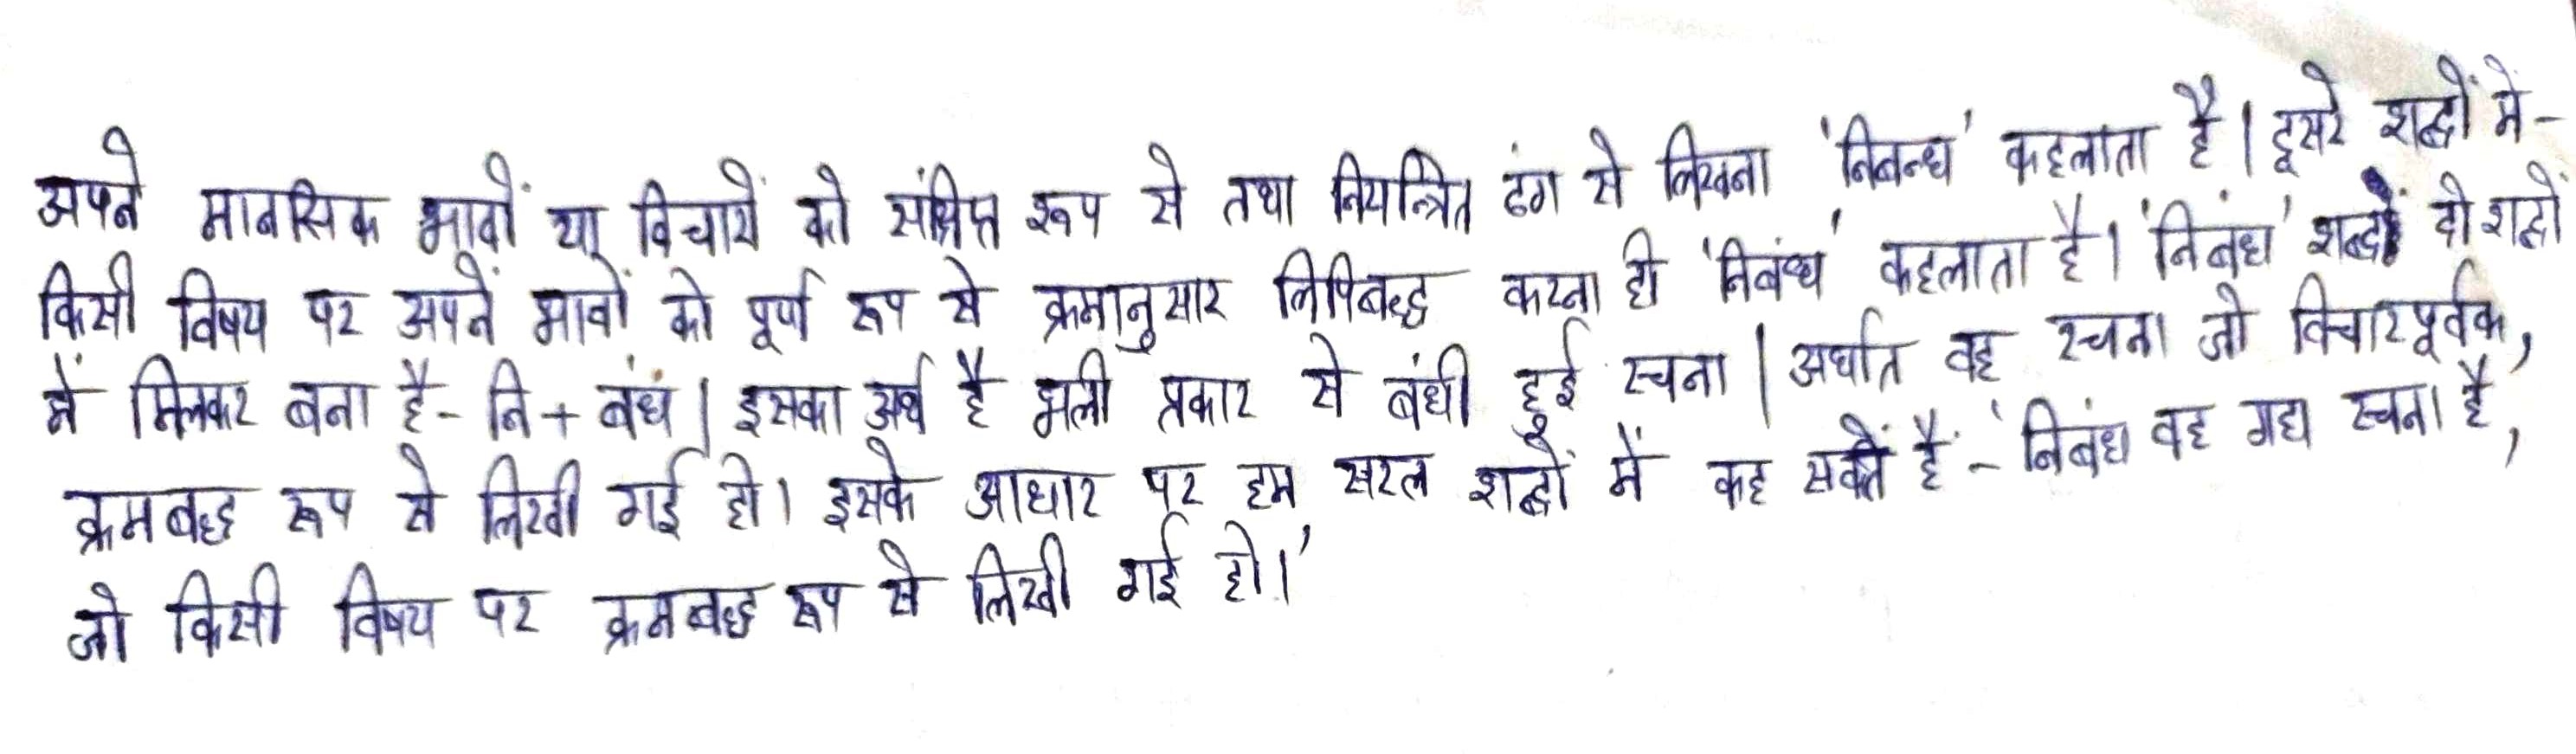 अपने मानसिक भावों या विचारों को संक्षिप्त रूप से तथा नियन्त्रित ढंग से लिखना 'निबन्ध' कहलाता है। दूसरे शब्दों में-
किसी विषय पर अपनें भावों को पूर्ण रूप से क्रमानुसार लिपिबद्ध करना ही 'निबंध' कहलाता है। 'निबंध' शब्द दो शब्दों
में मिलकर बना है- नि + बंध। इसका अर्थ है भली प्रकार से बंधी हुई रचना। अर्थात वह रचना जो विचारपूर्वक,
क्रमबद्ध रूप से लिखी गई हो। इसके आधार पर हम सरल शब्दों में कह सकते हैं - 'निबंध वह गद्य रचना है,
जो किसी विषय पर क्रमबद्ध रूप से लिखी गई हो।'